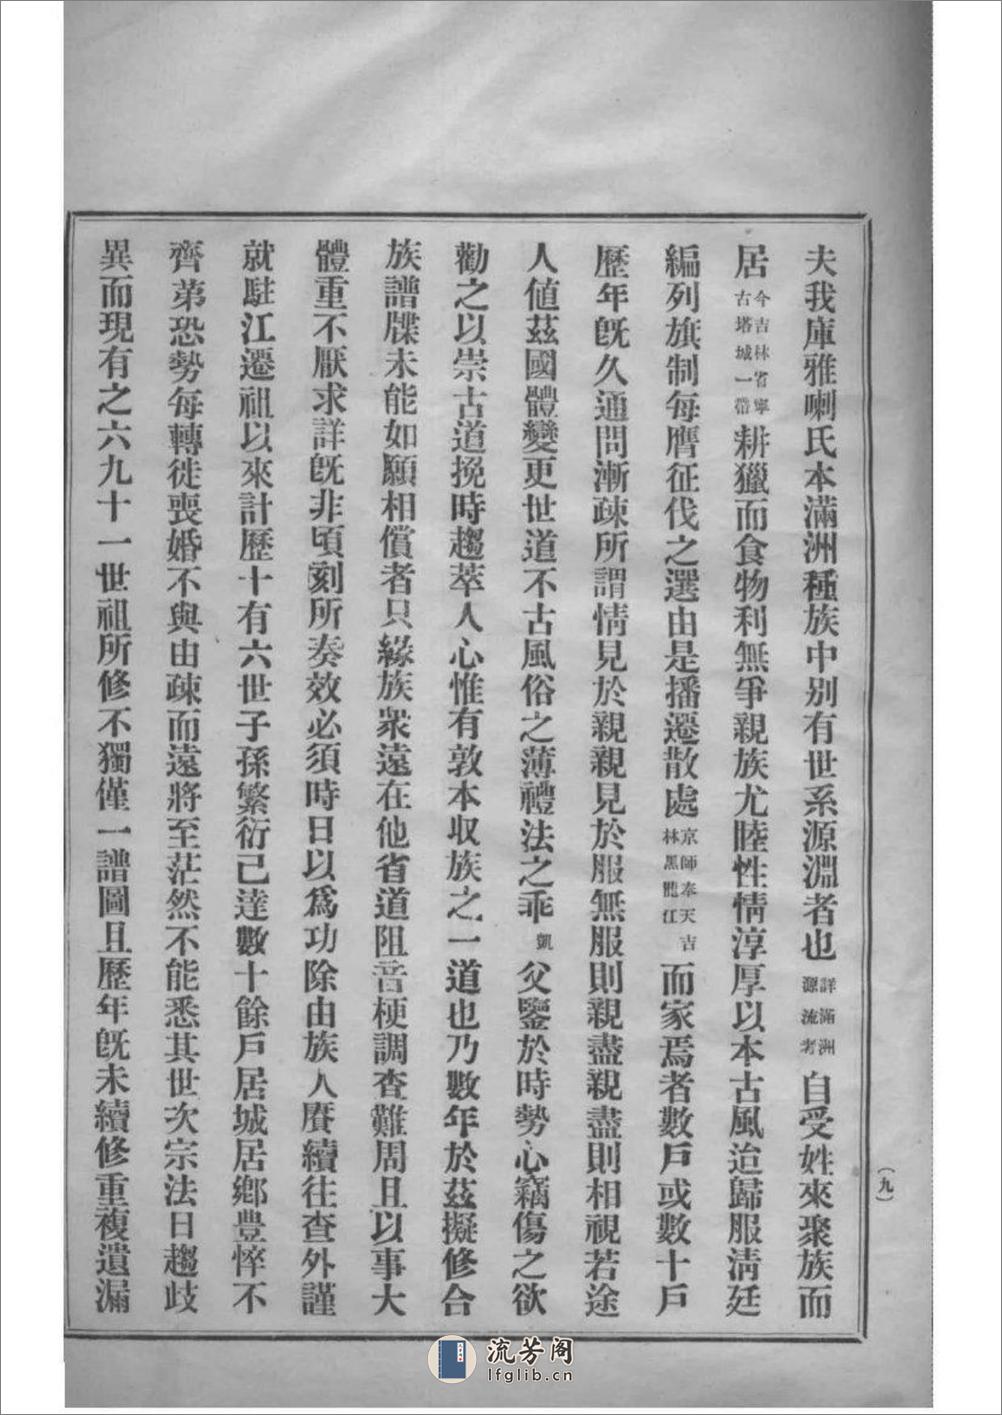 夫我庫雅喇氏本滿洲種族中別有世系源淵者也詳滿洲源流考自受姓來聚族而
居今吉林省寧古塔城一帶耕獵而食物利無爭親族尤睦性情淳厚以本古風迨歸服清廷
編列旗制每膺征伐之選由是播遷散處京師奉天吉林黑龍江而家焉者數戶或數十戶
歷年既久通問漸疎所謂情見於親親見於服無服則親盡親盡則相視若途
人値茲國體變更世道不古風俗之薄禮法之乖凱父鑒於時勢心竊傷之欲
勸之以崇古道挽時趨萃人心惟有敦本収族之一道也乃數年於茲擬修合
族譜牒未能如願相償者只緣族衆遠在他省道阻音梗調查難周且以事大
體重不厭求詳既非頃刻所奏效必須時日以爲功除由族人賡續往查外謹
就駐江遷祖以來計歷十有六世子孫繁衍己達數十餘戶居城居鄉豊悴不
齊第恐勢每轉徙喪婚不與由疎而遠將至茫然不能悉其世次宗法日趨歧
異而現有之六九十一世祖所修不獨僅一譜圖且歷年既未續修重複遺漏
（九）
流芳阁
lfglib.cn